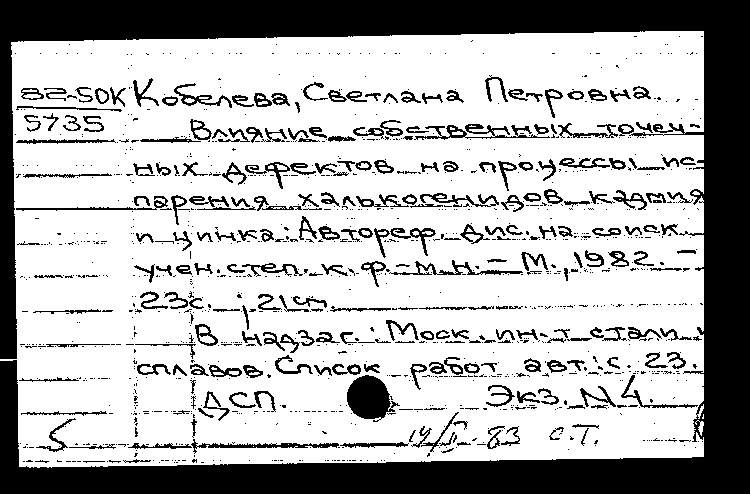 82-50К Кобелева, Светлана Петровна.
5735 Влияние собственных точеч-
ных дефектов на процессы ис-
парения халькогенидов кадмия
и цинка: Автореф. дис. на соиск
учен. степ. к. ф.-м. н. - М., 1982. -
23с. ; 21см.
В надзаг.: Моск. ин-т стали и
сплавов. Список работ авт.: с. 23.
ДСП. Экз. N4.
5 14/II-83 С.Т.